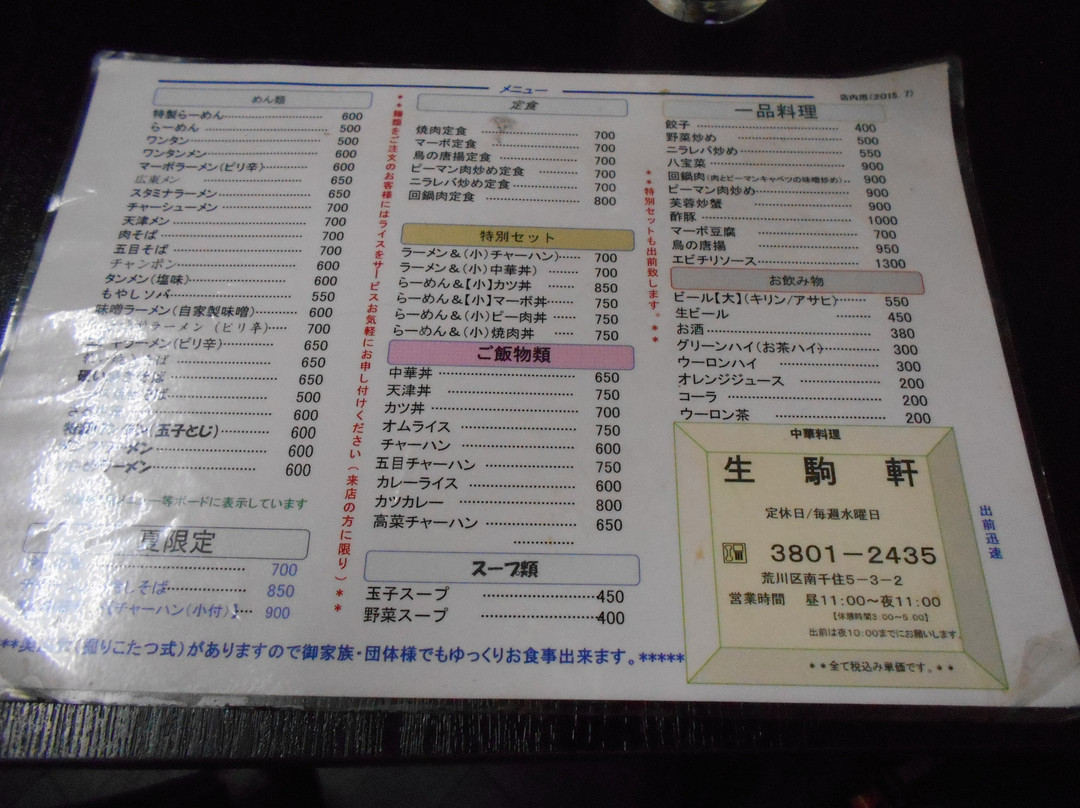 メニュー
店内用(2015.7)
めん類
特製らーめん 600
らーめん 500
ワンタン 500
ワンタンメン 600
マーボラーメン(ピリ辛) 600
広東メン 650
スタミナラーメン 650
チャーシューメン 700
天津メン 700
肉そば 700
五目そば 700
チャンポン 600
タンメン(塩味) 600
もやしソバ 550
味噌ラーメン(自家製味噌) 600
ラーメン(ピリ辛) 700
ラーメン(ピリ辛) 650
そば 650
650
500
600
(玉子とじ) 600
ーメン 600
ラーメン 600
等ボードに表示しています
夏限定
700
しそば 850
【チャーハン(小付)】 900
**麺類をご注文のお客様にはライスをサービスお気軽にお申し付けください(来店の方に限り)**
定食
焼肉定食 700
マーボ定食 700
鳥の唐揚定食 700
ピーマン肉炒め定食 700
ニラレバ炒め定食 700
回鍋肉定食 800
特別セット
ラーメン&(小)チャーハン) 700
ラーメン&(小)中華丼) 700
らーめん&【小】カツ丼 850
らーめん&【小】マーボ丼 750
らーめん&(小)ビー肉丼 750
らーめん&(小)焼肉丼 750
ご飯物類
中華丼 650
天津丼 750
カツ丼 700
オムライス 750
チャーハン 600
五目チャーハン 750
カレーライス 600
カツカレー 800
高菜チャーハン 650
スープ類
玉子スープ 450
野菜スープ 400
**特別セットも出前致します。**
一品料理
餃子 400
野菜炒め 500
ニラレバ炒め 550
八宝菜 900
回鍋肉(肉とピーマンキャベツの味噌炒め) 900
ピーマン肉炒め 900
芙蓉炒蟹 900
酢豚 1000
マーボ豆腐 700
鳥の唐揚 950
エビチリソース 1300
お飲み物
ビール【大】(キリン/アサヒ) 550
生ビール 450
お酒 380
グリーンハイ(お茶ハイ) 300
ウーロンハイ 300
オレンジジュース 200
コーラ 200
ウーロン茶 200
中華料理
生駒軒
定休日/毎週水曜日
3801-2435
荒川区南千住5-3-2
営業時間 昼11:00~夜11:00
【休憩時間3:00~5:00】
出前は夜10:00までにお願いします。
**全て税込み単価です。**
出前迅速
(掘りこたつ式)がありますので御家族・団体様でもゆっくりお食事出来ます。*****